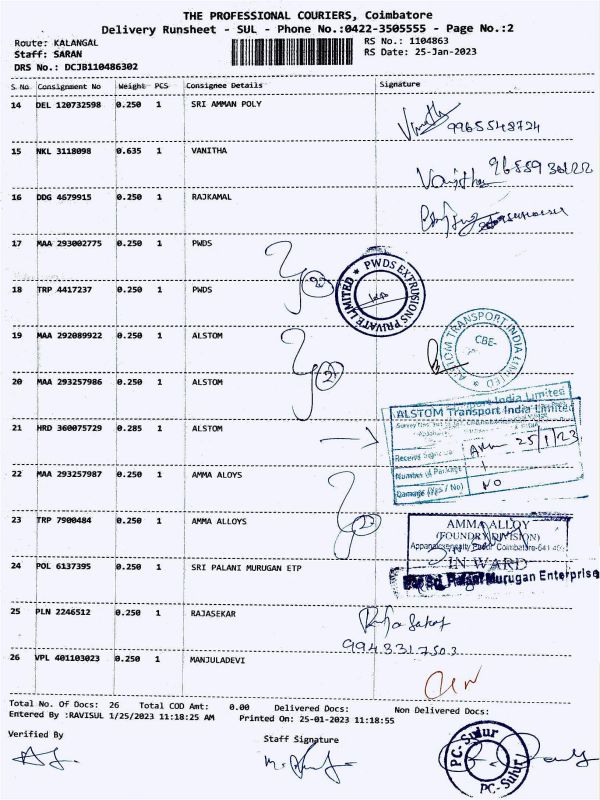 THE PROFESSIONAL COURIERS, Coimbatore
Delivery Runsheet - SUL - Phone No.:0422-3505555 - Page No.:2
Route: KALANGAL RS No.: 1104863
Staff: SARAN RS Date: 25-Jan-2023
DRS No.: DCJB110486302
S. No Consignment No Weight PCS Consignee Details Signature
14 DEL 120732598 0.250 1 SRI AMMAN POLY
9965548724
15 NKL 3118098 0.635 1 VANITHA
Vanitha
16 DDG 4679915 0.250 1 RAJKAMAL
17 MAA 293002775 0.250 1 PWDS
PWDS EXTRUSIONS PRIVATE LIMITED
18 TRP 4417237 0.250 1 PWDS
19 MAA 292089922 0.250 1 ALSTOM
ALSTOM TRANSPORT INDIA LIMITED
CBE-
20 MAA 293257986 0.250 1 ALSTOM
ALSTOM Transport India Limited
21 HRD 360075729 0.285 1 ALSTOM
25/1/23
Number of Package 1
Damage (Yes / No) NO
22 MAA 293257987 0.250 1 AMMA ALOYS
23 TRP 7900484 0.250 1 AMMA ALLOYS
AMMA ALLOY
(FOUNDRY DIVISION)
Coimbatore-641
IN WARD
24 POL 6137395 0.250 1 SRI PALANI MURUGAN ETP
For Sri Palani Murugan Enterprise
25 PLN 2246512 0.250 1 RAJASEKAR
9943317503
26 VPL 401103023 0.250 1 MANJULADEVI
Total No. Of Docs: 26 Total COD Amt: 0.00 Delivered Docs: Non Delivered Docs:
Entered By :RAVISUL 1/25/2023 11:18:25 AM Printed On: 25-01-2023 11:18:55
Verified By Staff Signature
PC-Sulur
PC-Sulur